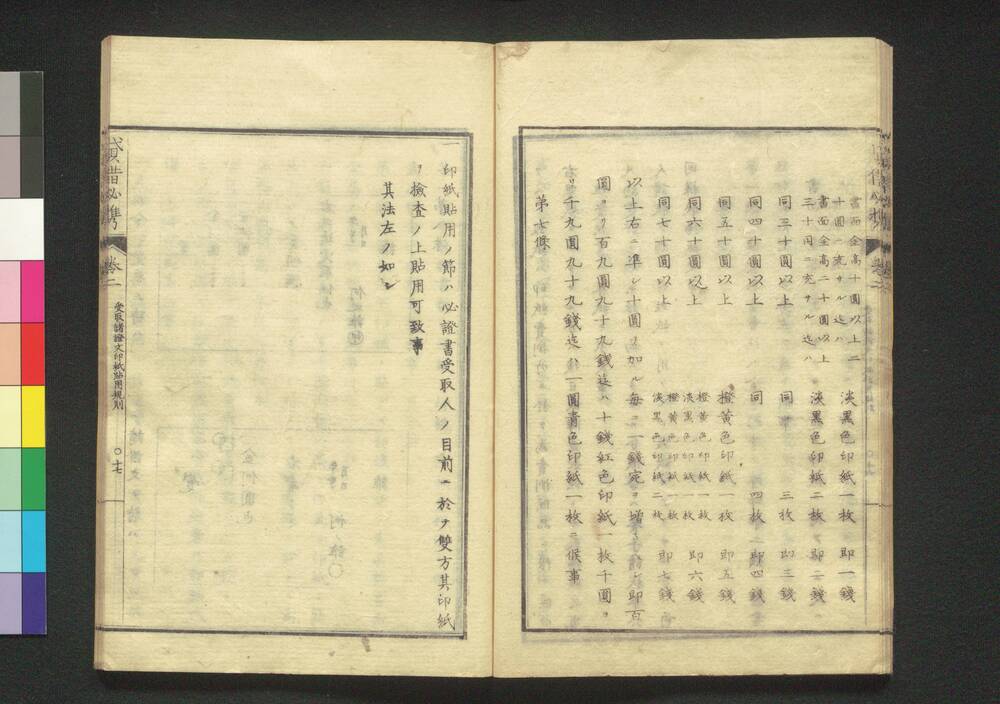 書面金高十圓以上二
十圓ニ充サル迄ハ
淡黑色印紙一枚 即一錢
書面金高二十圓以上
三十圓ニ充サル迄ハ
淡黑色印紙二枚 即二錢
同三十圓以上 同 三枚 即三錢
同四十圓以上 同 四枚 即四錢
同五十圓以上 橙黄色印紙一枚 即五錢
同六十圓以上 橙黄色印紙一枚
淡黑色印紙一枚 即六錢
同七十圓以上 橙黄色印紙一枚
淡黑色印紙二枚 即七錢
以上右ニ準シ十圓ヲ加ル每ニ一錢宛ヲ增シ即百
圓ヨリ百九圓九十九錢迄ハ十錢紅色印紙一枚千圓ヨ
リ千九圓九十九錢迄ハ一圓青色印紙一枚ニ候事
第七條
一印紙貼用ノ節ハ必證書受取人ノ目前ニ於テ雙方其印紙
ヲ檢査ノ上貼用可致事
其法左ノ如シ
貸借必携 卷二 受取諸證文印紙貼用規則 〇十七